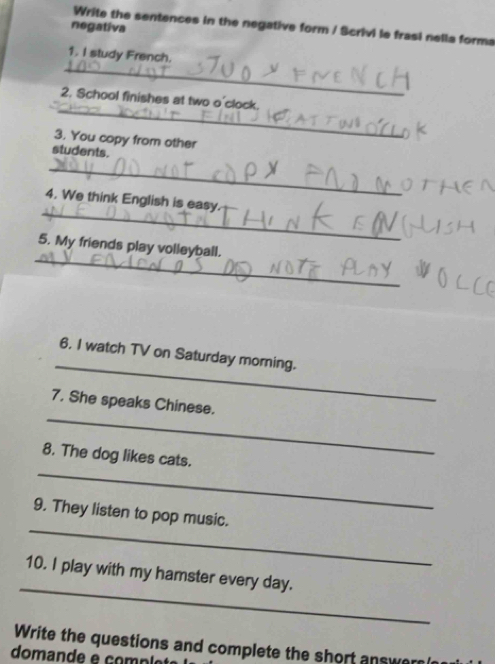 Write the sentences in the negative form / Scrivi le frasi nella forma
negativa
1. I study French.
I DO NOT STUDY FRENCH
2. School finishes at two o'clock.
AT TWO O'CLOK
3. You copy from other
students.
YOU DO NOT COPY
4. We think English is easy.
WE DO NOT THINK ENGLISH
5. My friends play volleyball.
MY DO NOT PLAY
6. I watch TV on Saturday morning.
7. She speaks Chinese.
8. The dog likes cats.
9. They listen to pop music.
10. I play with my hamster every day.
Write the questions and complete the short
domande e